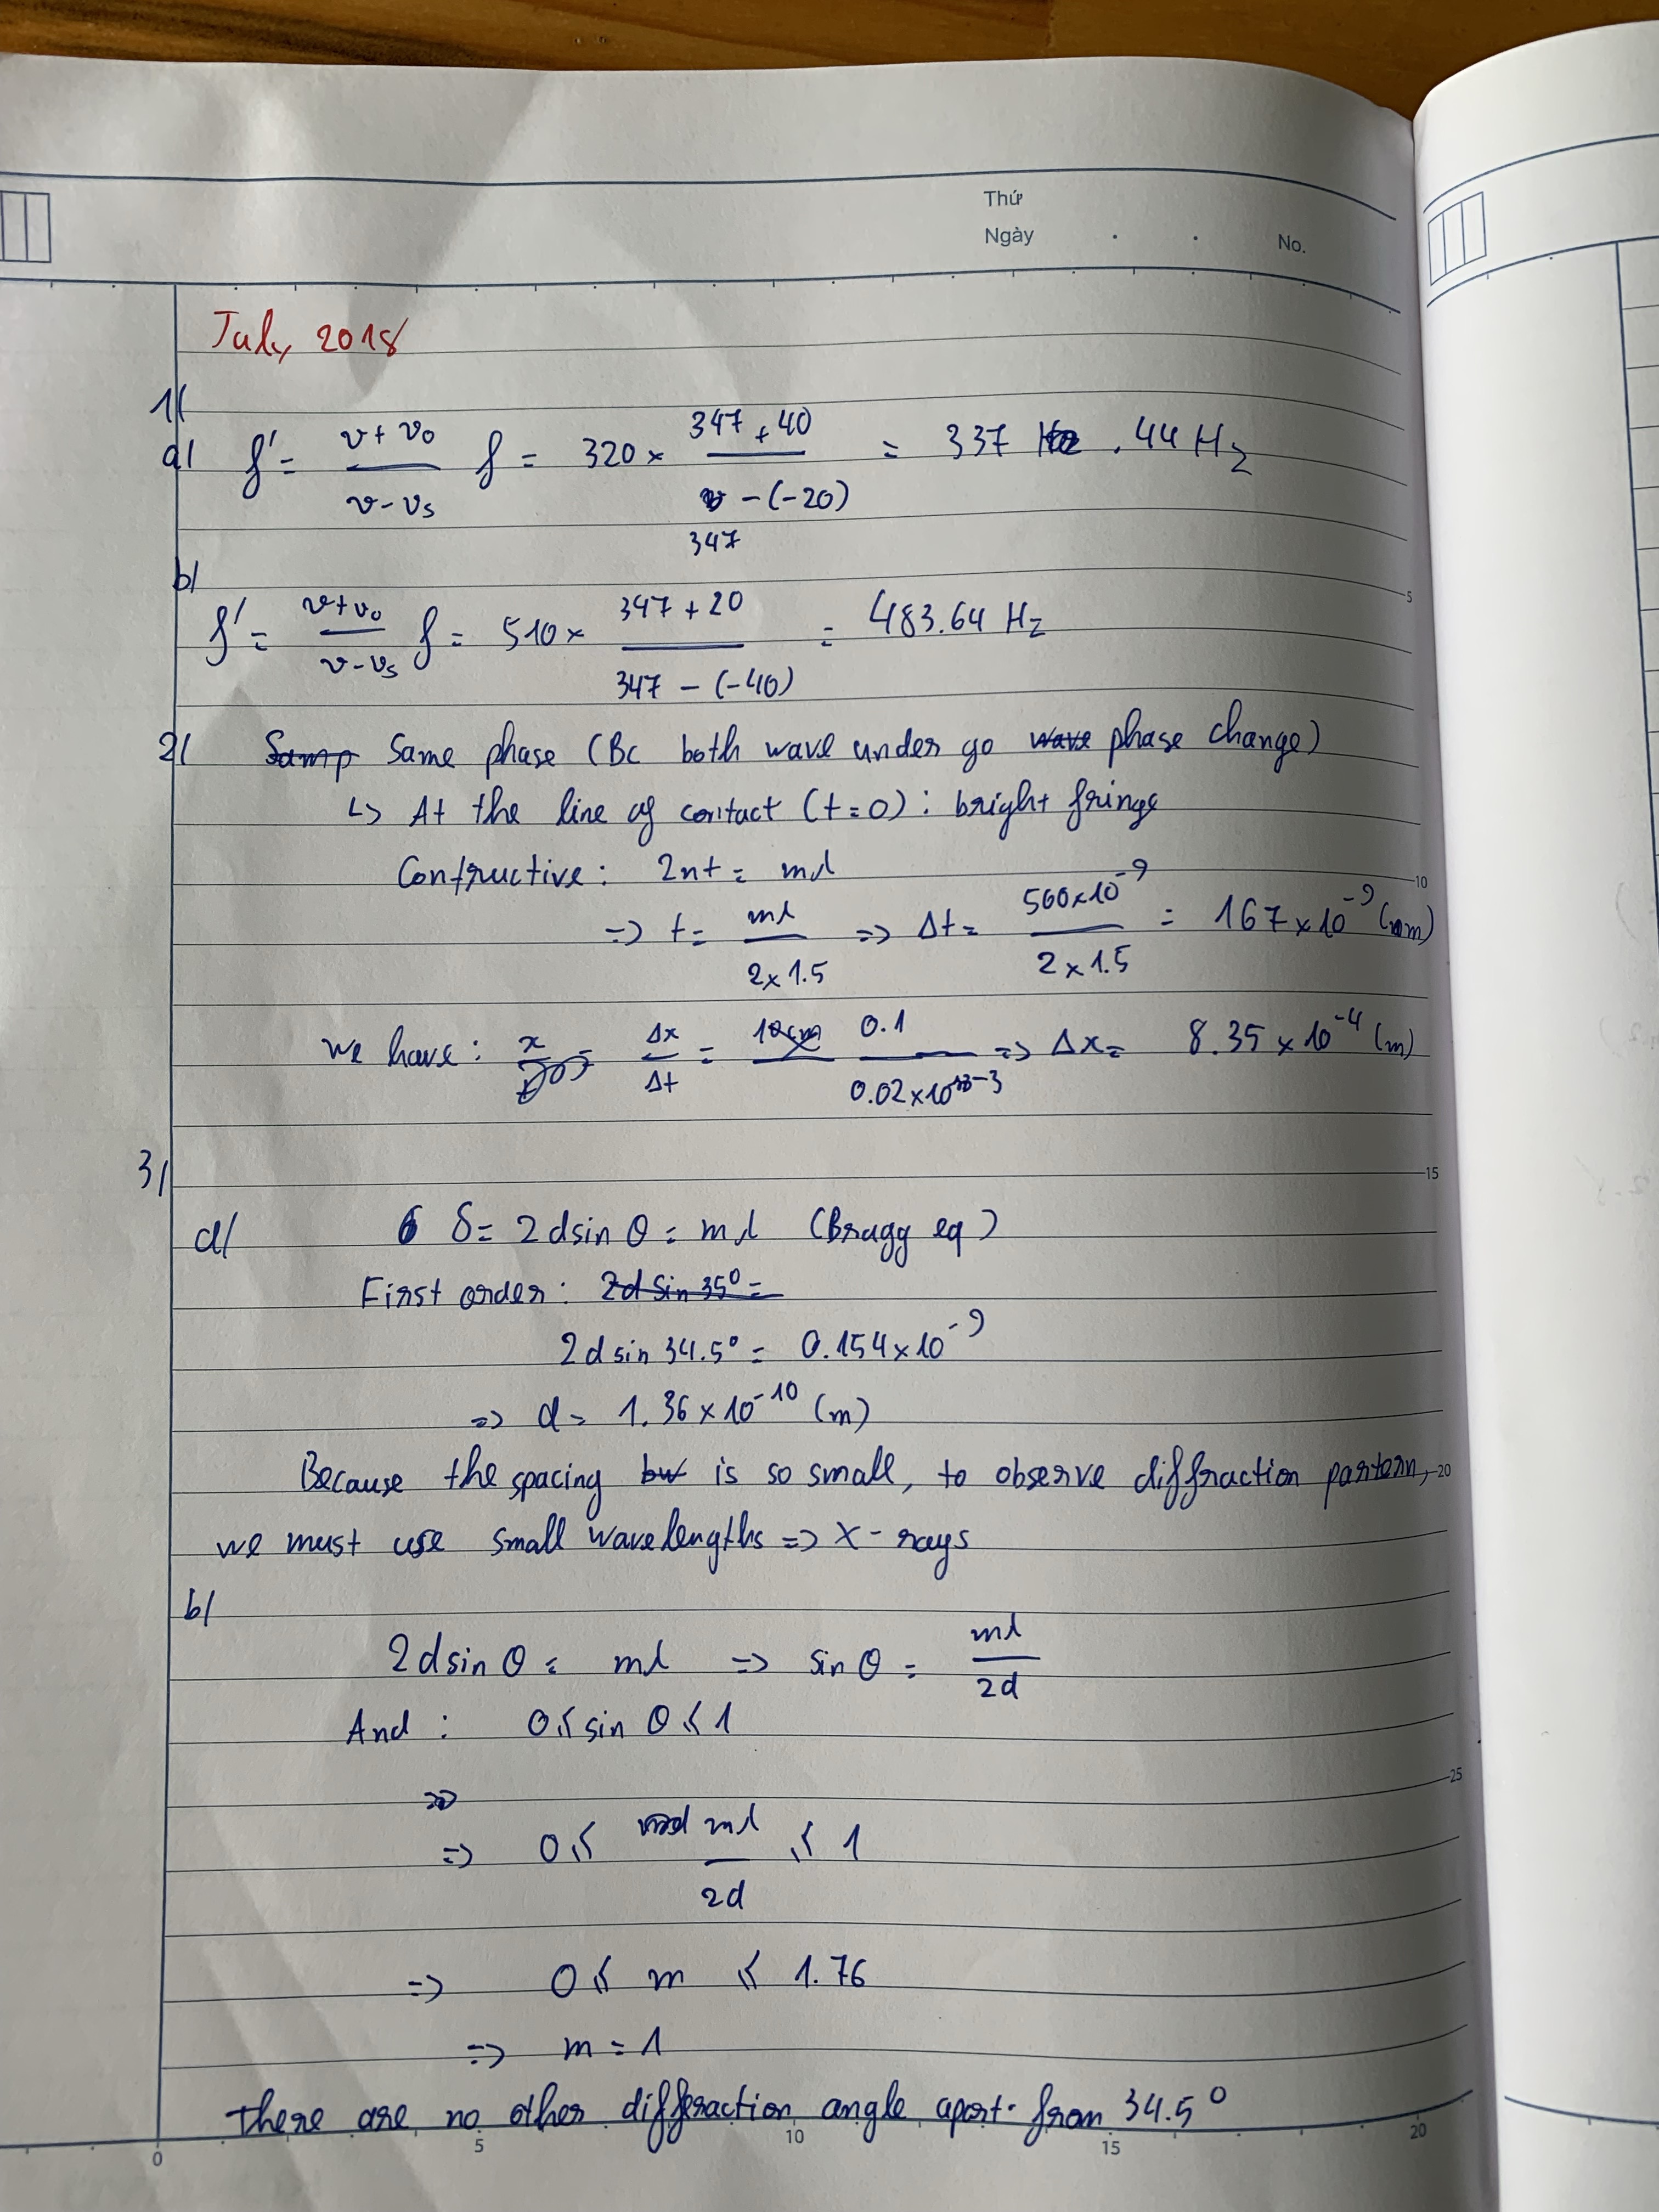 Thứ
Ngày . . No.
July 2018
1/
a/ f' = (v + v₀)/(v - vₛ) f = 320 × (347 + 40)/(347 - (-20)) = 337.44 Hz
b/
f' = (v + v₀)/(v - vₛ) f = 510 × (347 + 20)/(347 - (-40)) = 483.64 Hz
5
2/ Same phase (Bc both wave under go phase change)
↳ At the line of contact (t = 0) : bright fringe
Contructive : 2nt = mλ
10
=> t = mλ/(2 × 1.5) => Δt = 560×10⁻⁹/(2 × 1.5) = 167 × 10⁻⁹ (m)
we have : Δx/Δt = 0.1/(0.02×10⁻³) => Δx = 8.35 × 10⁻⁴ (m)
3/
15
a/ δ = 2dsin θ = mλ (Bragg eq)
First order :
2d sin 34.5° = 0.154×10⁻⁹
=> d = 1.36 × 10⁻¹⁰ (m)
Because the spacing is so small, to observe diffraction partern,
20
we must use small wavelengths => X-rays
b/
2dsin θ = mλ => sin θ = mλ/2d
And : 0 ≤ sin θ ≤ 1
25
=> 0 ≤ mλ/2d ≤ 1
=> 0 ≤ m ≤ 1.76
=> m = 1
There are no other diffraction angle apart from 34.5°
0 5 10 15 20